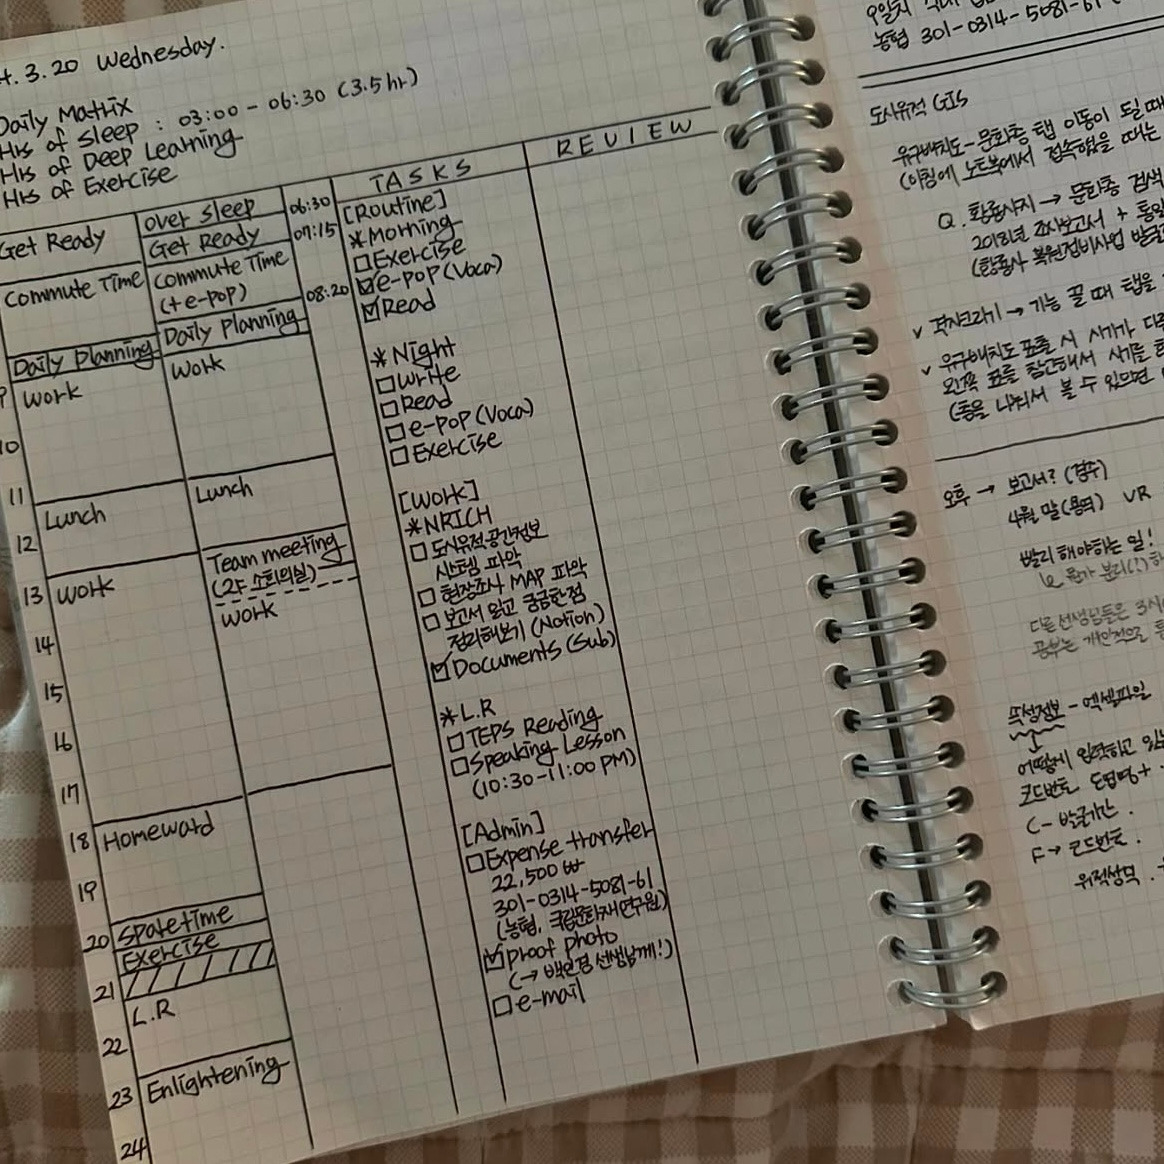 4.3.20 Wednesday.
Daily Matrix
Hrs of Sleep : 03:00 - 06:30 (3.5hr)
Hrs of Deep Learning
Hrs of Exercise
Get Ready
Commute Time
Daily Planning
9 Work
10
11
Lunch
12
13 Work
14
15
16
17
18 Homeward
19
20 Sparetime
Exercise
21
L.R
22
23 Enlightening
24
over sleep 06:30
Get Ready 07:15
Commute Time
(+e-pop) 08:20
Daily Planning
Work
Lunch
Team meeting
(2F 소회의실)
Work
TASKS
[Routine]
*Morning
□Exercise
☑e-pop(Voca)
☑Read
*Night
□Write
□Read
□e-pop(Voca)
□Exercise
[Work]
*NRICH
□도시유적공간정보
시스템 파악
□현장조사 MAP 파악
□보고서 읽고 궁금한점
정리해보기(Notion)
☑Documents(Sub)
*L.R
□TEPS Reading
□Speaking Lesson
(10:30-11:00 PM)
[Admin]
□Expense transfer
22,500₩
301-0314-5081-61
(농협, 국립문화재연구원)
☑proof photo
(→ 백인경 선생님께!)
□e-mail
REVIEW
농협 301-0314-5081-61
도시유적 GIS
유구배치도-문화층 탭 이동이 될때
(아침에 노트북에서 접속했을 때는
Q. 황룡사지 → 문화층 검색
2018년 조사보고서 + 통일
(황룡사 복원정비사업 발굴
∨ 격자크기 → 기능 끌 때 탭을
∨ 유구배치도 표출 시 시기가 다
왼쪽 표를 참고해서 시기를
(층을 나눠서 볼 수 있으면
오후 → 보고서? (경주)
4월 말(용역) VR
빨리 해야하는 일!
다른 선생님들은 3시
공부는 개인적으로
속성정보 - 엑셀파일
어떻게 입력하고 있는
코드번호 도면명+
C- 발굴기간.
F→ 코드번호.
유적상면.